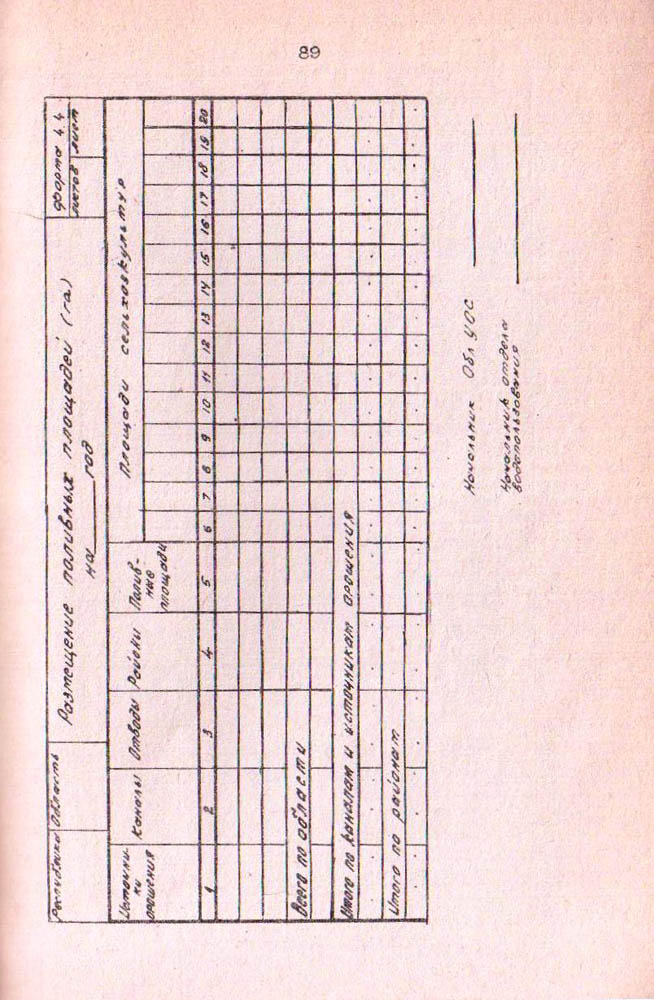 89
Республика Область
Размещение поливных площадей (га)
на ____ год
форма 4.4
листов лист
Источни-
ки
орошения
Каналы
Отводы
Районы
Полив-
ные
площади
Площади сельхозкультур
1 2 3 4 5 6 7 8 9 10 11 12 13 14 15 16 17 18 19 20
Всего по области
Итого по каналам и источникам орошения
Итого по районам
Начальник Обл УОС
Начальник отдела
водопользования